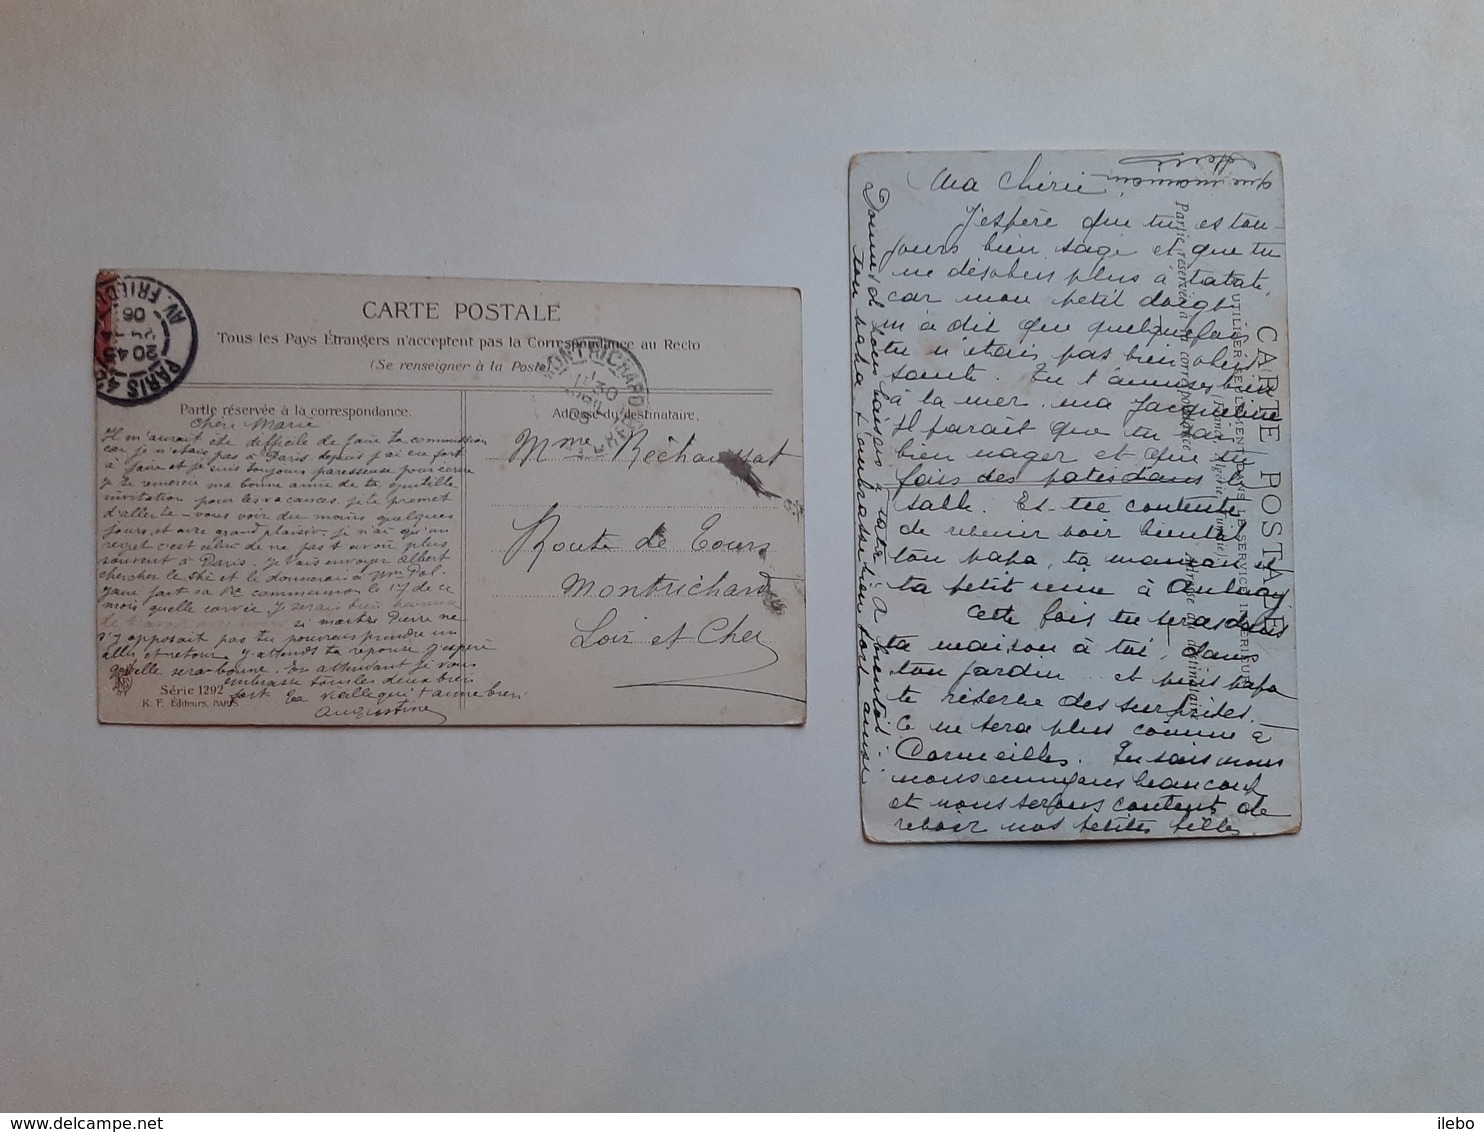 CARTE POSTALE
Tous les Pays Étrangers n'acceptent pas la Correspondance au Recto
(Se renseigner à la Poste)
Partie réservée à la correspondance.
Adresse du destinataire.
PARIS 42
20 45
06
AV. FRIEDLAND
MONTRICHARD
LOIR ET CHER
Chère Marie
Il m'aurait été difficile de faire ta commission
car je n'étais pas à Paris depuis j'ai eu fort
à faire et je suis toujours paresseuse pour écrire
je te remercie ma bonne amie de ta gentille
invitation pour les vacances je te promet
d'aller te-vous voir du moins quelques
jours, et avec grand plaisir je n'ai qu'un
regret c'est celui de ne pas t'avoir plus
souvent à Paris. je vais envoyer Albert
chercher le thé et le donnerai à Mme Pol.
fait sa 1re communion le 17 de ce
mois quelle corvée je serais bien heureuse
de t'avoir avec nous si maître Pierre ne
s'y opposait pas tu pourrais prendre un
aller et retour. j'attends ta réponse j'espère
qu'elle sera bonne. En attendant je vous
embrasse tous les deux bien
fort ta vieille qui t'aime bien
Augustine
Série 1292
K. F. Éditeurs, PARIS
Mme Réchaussat
Route de Tours
Montrichard
Loir et Cher
que maman
Ma Chérie,
J'espère que tu es tou-
jours bien sage et que tu
ne désobéis plus à tatate,
car mon petit doigt
m'a dit que quelquefois
tu n'étais pas bien obéis-
sante. Tu t'amuses bien
à la mer, ma Jacqueline
Il paraît que tu sais
bien nager et que tu
fais des patés dans le
sable. Es-tu contente
de revenir voir bientôt
ton papa, ta maman et
ta petite sœur à Aulnay
Cette fois tu seras dans
ta maison à toi, dans
ton jardin ... et puis papa
te réserve des surprises.
Ce ne sera plus comme à
Cormeilles. Tu sais nous
nous ennuyons beaucoup
et nous serons contents de
revoir nos petites filles.
Donne de bons baisers à tata. A bientôt.
ton papa t'embrasse bien fort ainsi
CARTE POSTALE
A UTILISER SEULEMENT DANS LE SERVICE INTÉRIEUR
(France, Algérie, Tunisie)
Partie réservée à la correspondance
Adresse du destinataire
ilebo